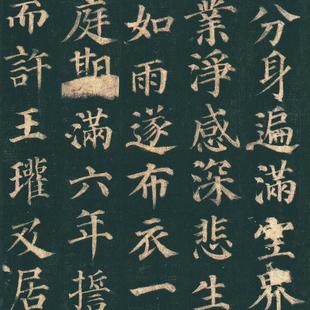 分身遍滿空界
業淨感深悲生
如雨遂布衣一
庭期滿六年誓
而許王瓘及居